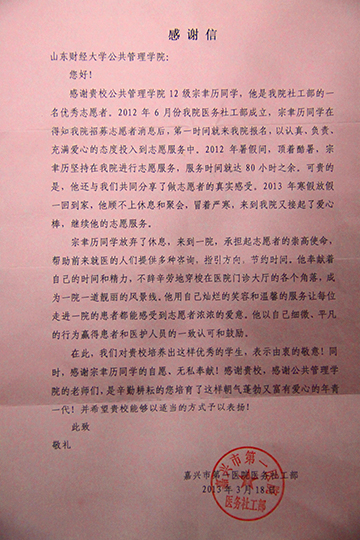 感谢信
山东财经大学公共管理学院：
您好！
感谢贵校公共管理学院12级宗聿历同学，他是我院社工部的一
名优秀志愿者。2012年6月份我院医务社工部成立，宗聿历同学在
得知我院招募志愿者消息后，第一时间就来我院报名，以认真，负责，
充满爱心的态度投入到志愿服务中。2012年暑假间，顶着酷暑，宗
聿历坚持在我院进行志愿服务，服务时间就达80小时之余。可贵的
是，他还与我们共同分享了做志愿者的真实感受。2013年寒假放假
一回到家，他顾不上休息和聚会，冒着严寒，来到我院又接起了爱心
棒，继续他的志愿服务。
宗聿历同学放弃了休息，来到一院，承担起志愿者的崇高使命，
帮助前来就医的人们提供多种咨询，指引方向，节约时间。他奉献着
自己的时间和精力，不辞辛劳地穿梭在医院门诊大厅的各个角落，成
为一院一道靓丽的风景线。他用自己灿烂的笑容和温馨的服务让每位
走进一院的患者都能感受到志愿者浓浓的爱意。他以自己细微、平凡
的行为赢得患者和医护人员的一致认可和鼓励。
在此，我们对贵校培养出这样优秀的学生，表示由衷的敬意！同
时，感谢宗聿历同学的自愿、无私奉献！感谢贵校，感谢公共管理学
院的老师们，是辛勤耕耘的您培育了这样朝气蓬勃又富有爱心的年青
一代！并希望贵校能够以适当的方式予以表扬！
此致
敬礼
嘉兴市第一医院医务社工部
2013年3月18日
嘉兴市第一医院
医务社工部